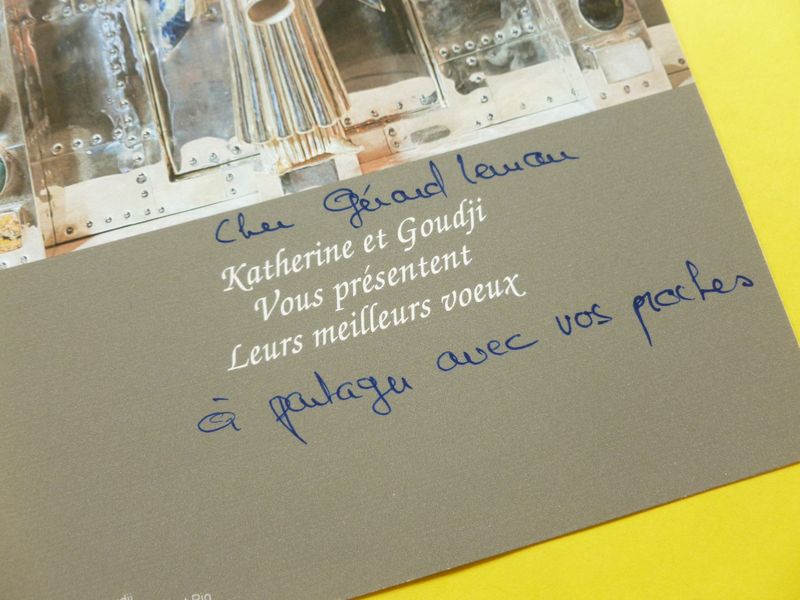 Cher Gérard Leman
Katherine et Goudji
Vous présentent
Leurs meilleurs voeux
à partager avec vos proches